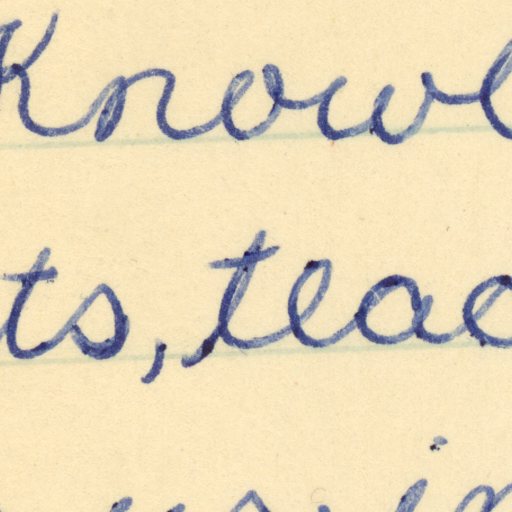 Knowl
ts, teac